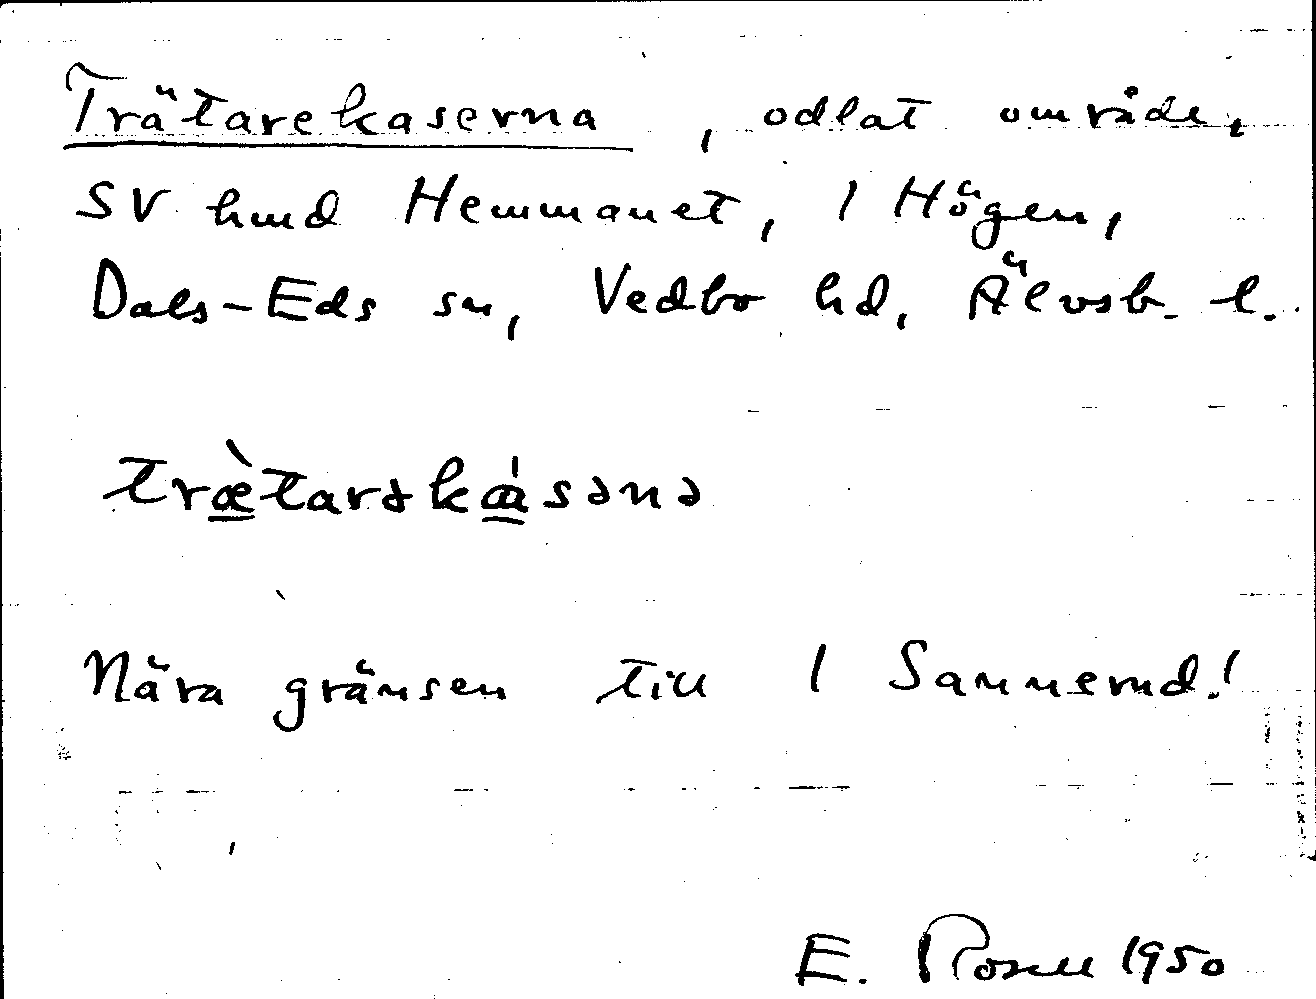 Trätarekaserna, odlat område,
SV hmd Hemmanet, 1 Högen,
Dals-Eds sn, Vedbo hd, Älvsb. l.
træ̀tarəkɑ̍sənə
Nära gränsen till 1 Sannerud!
E. Rosell 1950